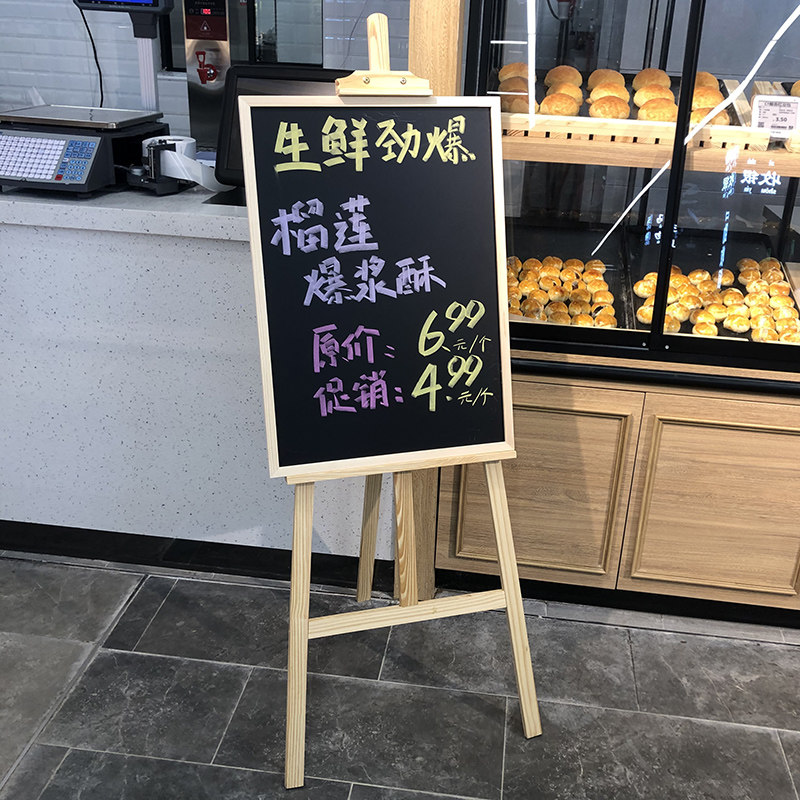 生鲜劲爆
榴莲
爆浆酥
原价: 6.99元/个
促销: 4.99元/个
3.50
收银